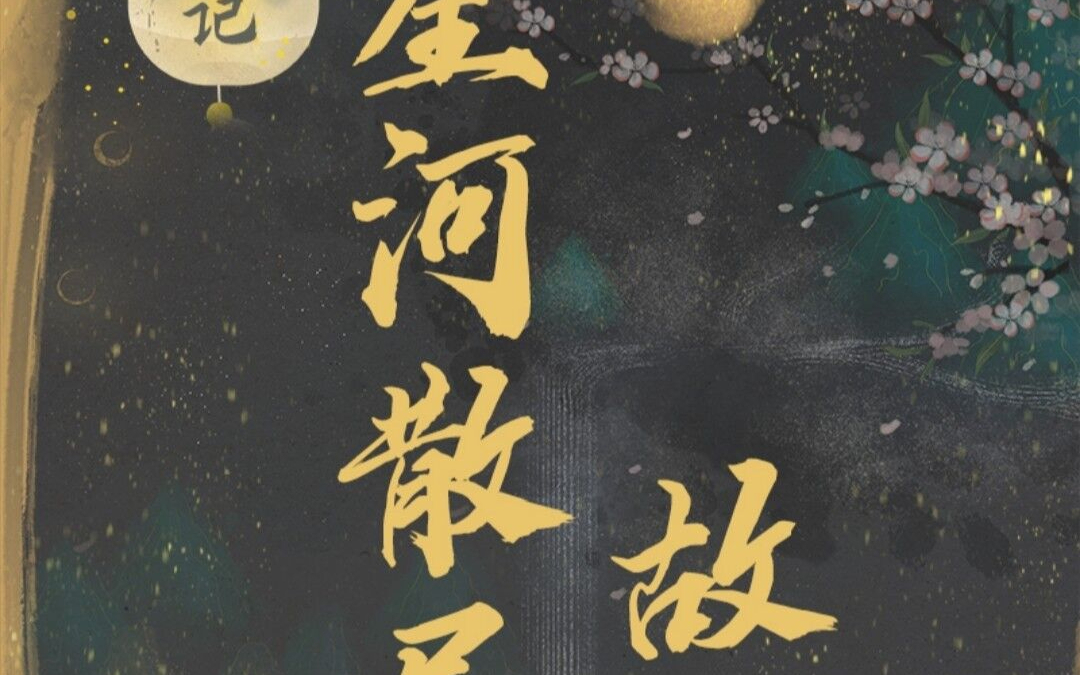 记
星河散
故